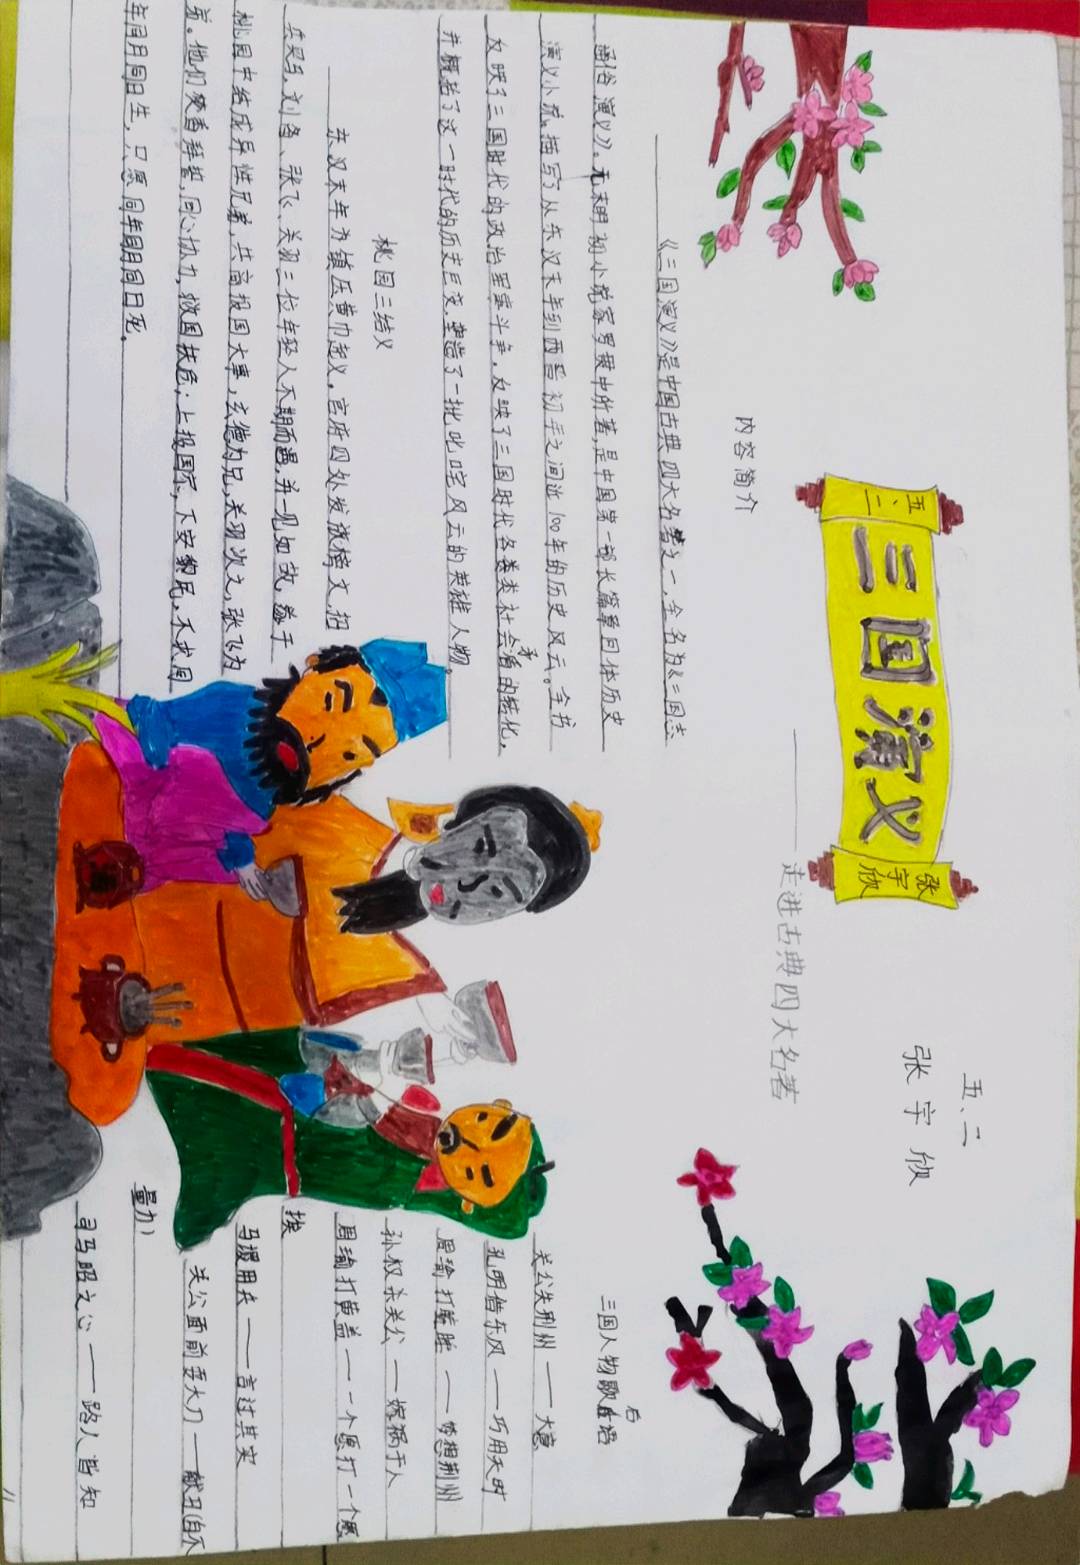 五、二
张宇欣
五、二
三国演义
张宇欣
——走进古典四大名著
内容简介
《三国演义》是中国古典四大名著之一,全名为《三国志
通俗演义》。元末明初小说家罗贯中所著,是中国第一部长篇章回体历史
演义小说。描写了从东汉末年到西晋初年之间近100年的历史风云。全书
反映了三国时代的政治军事斗争,反映了三国时代各类社会矛盾的转化,
并概括了这一时代的历史巨变,塑造了一批叱咤风云的英雄人物。
桃园三结义
东汉末年为镇压黄巾起义,官府四处发放榜文,招
兵买马,刘备、张飞、关羽三位年轻人不期而遇,并一见如故,
桃园中结成异性兄弟,共商报国大事,玄德为兄,关羽次之,张飞为
弟。他们焚香拜誓,同心协力,救国扶危;上报国家,下安黎民,不求同
年同月同日生,只愿同年同月同日死。
三国人物歇后语
关公失荆州——大意
孔明借东风——巧用天时
周瑜打瞌睡——梦想荆州
孙权杀关公——嫁祸于人
周瑜打黄盖——一个愿打一个愿
挨
马谡用兵——言过其实
关公面前耍大刀——献丑(自不
量力)
司马昭之心——路人皆知